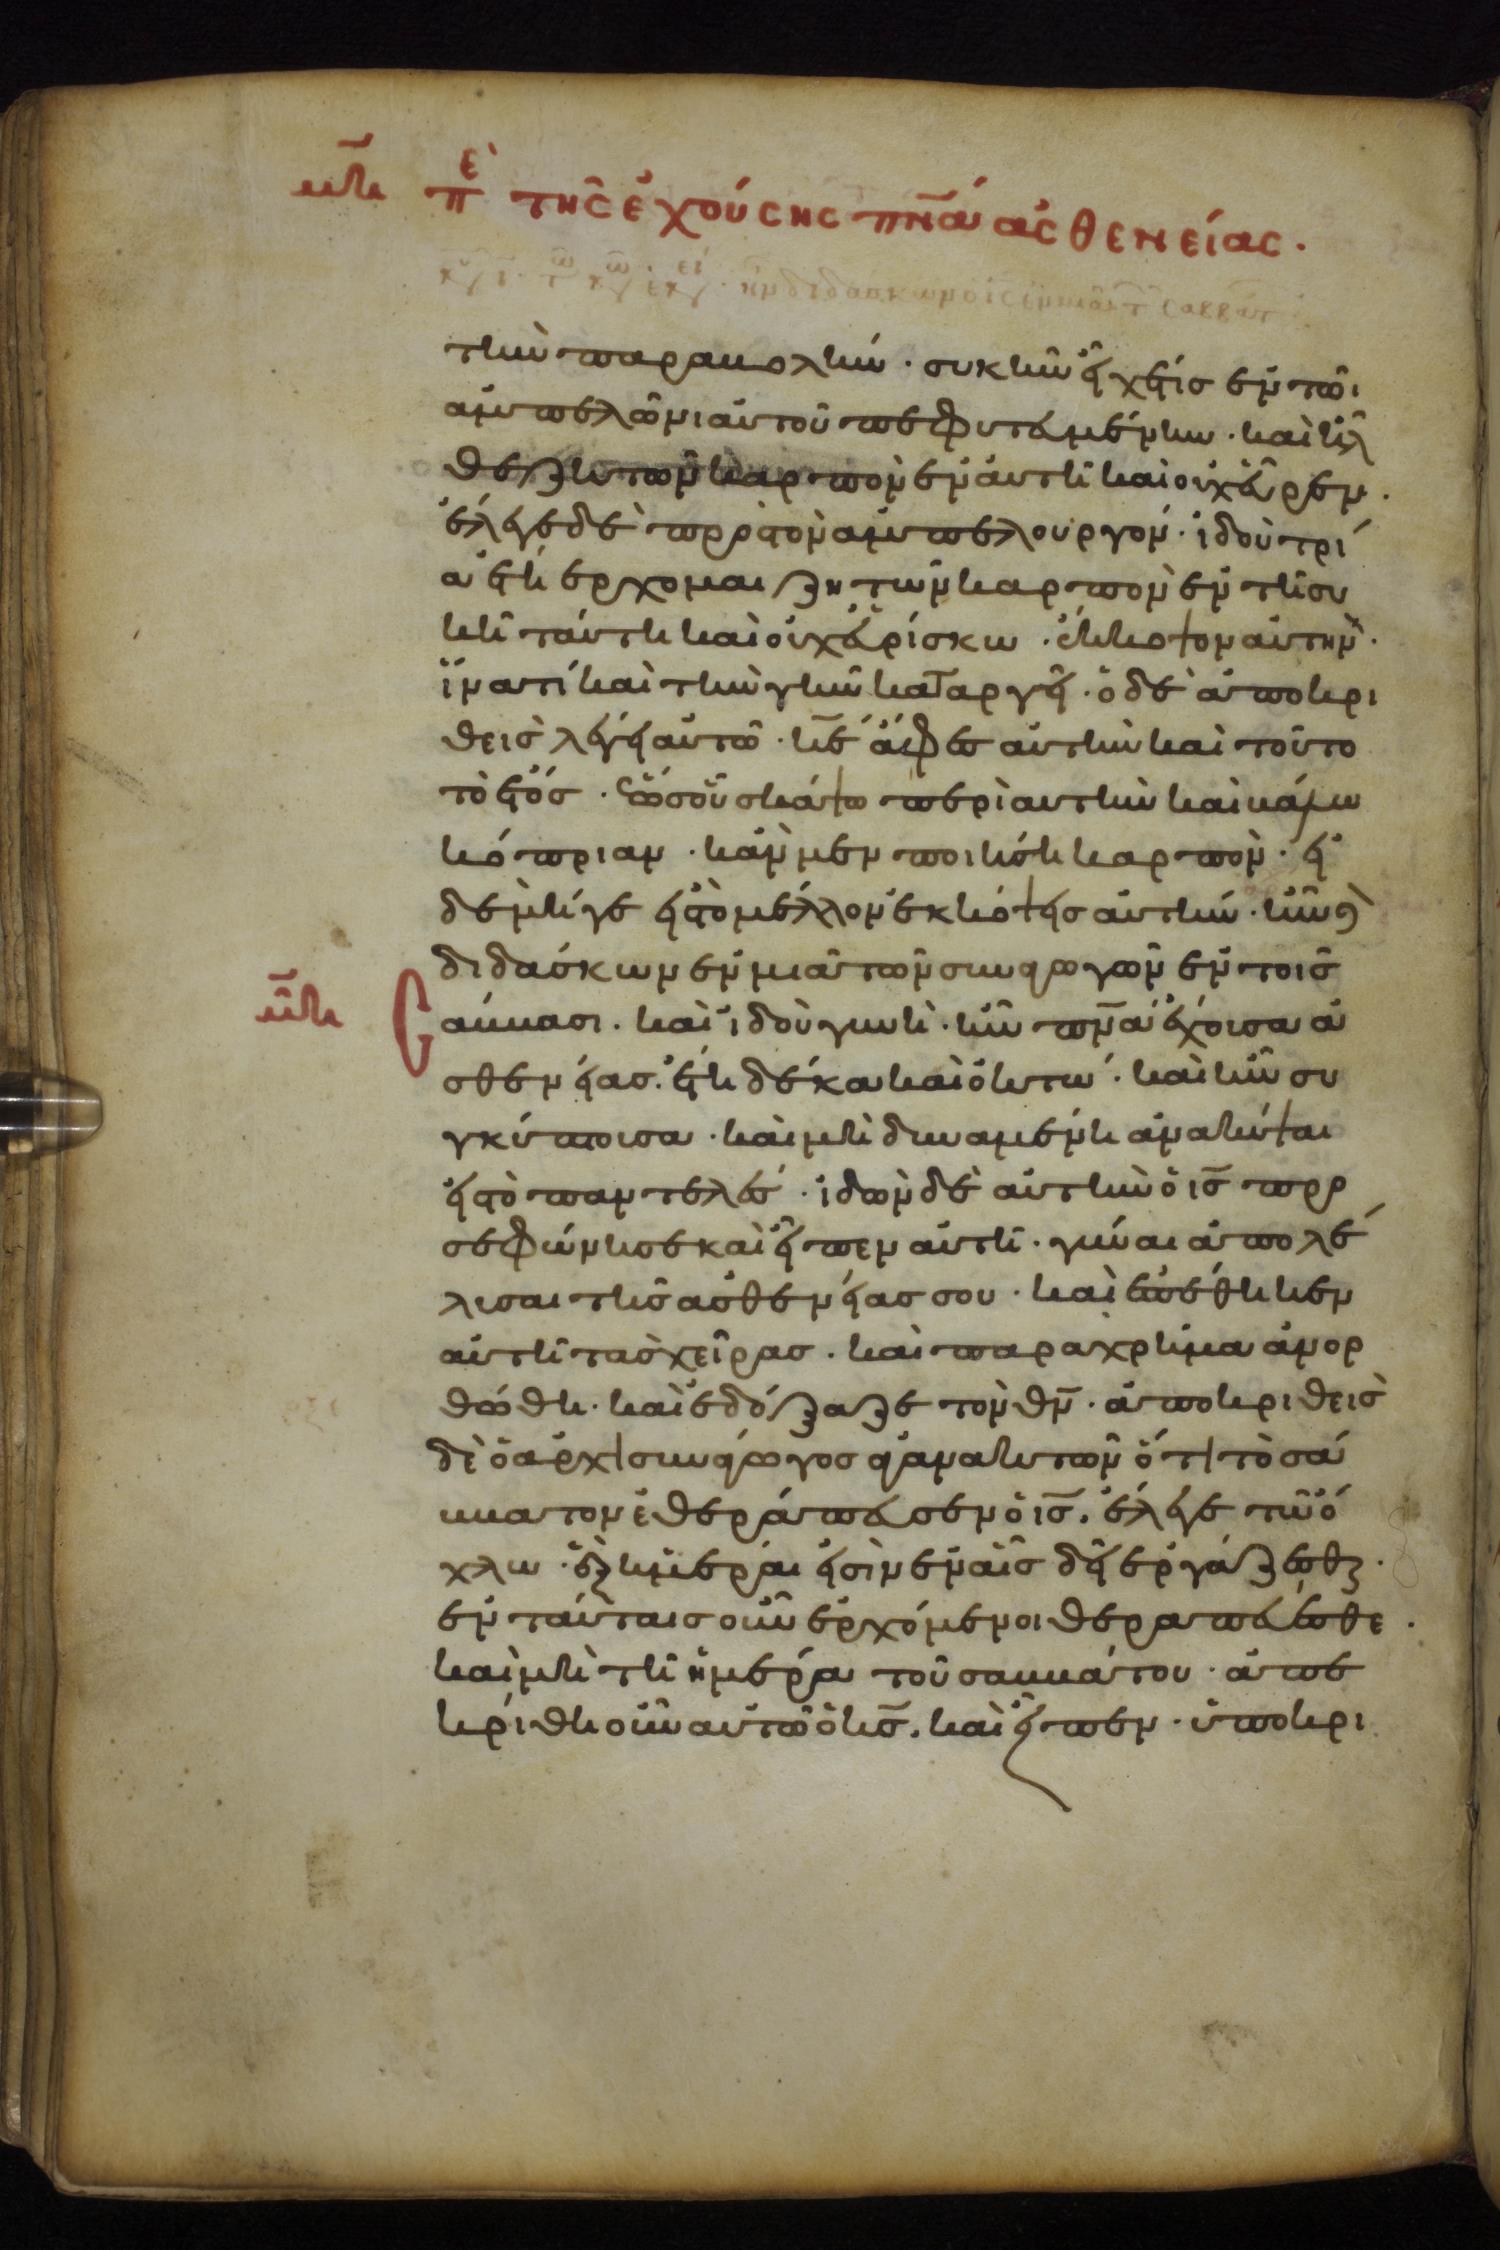 μη περὶ τῆς ἐχούσης πνᾶ ἀσθενείας.
διδάσκων ὁ ις ἐν μιᾶ τ σαββατ
τὴν παραβολήν · συκῆν εἶχέ τις ἐν τῶι
ἀμπελῶνι αὐτοῦ πεφυτευμένην · καὶ ἦλ
θε ζητῶν καρπὸν ἐν αὐτῆ καὶ οὐχ εὗρεν ·
ἔλεγε δὲ πρὸς τὸν ἀμπελουργόν · ἰδοὺ τρί
α ἔτη ἔρχομαι ζητῶν καρπὸν ἐν τῆ συ
κῆ ταύτη καὶ οὐχ εὑρίσκω · ἔκκοψον αὐτὴν ·
ἵνατί καὶ τὴν γῆν καταργεῖ · ὁ δὲ ἀποκρι
θεὶς λέγει αὐτῶ · κε ἄφες αὐτὴν καὶ τοῦτο
τὸ ἔτος · ἕως οὗ σκάψω περὶ αὐτὴν καὶ βάλω
κόπριαν · κἂν μὲν ποιήση καρπὸν · εἰ
δὲ μήγε εἰς τὸ μέλλον ἐκκόψεις αὐτήν · ἦν δὲ
διδάσκων ἐν μιᾶ τῶν συναγωγῶν ἐν τοῖς
μη Σάββασι · καὶ ἰδοὺ γυνὴ · ἦν πνᾶ ἔχουσα ἀ
σθενείας · ἔτη δέκα καὶ ὀκτώ · καὶ ἦν συ
γκύπτουσα · καὶ μὴ δυναμένη ἀνακύψαι
εἰς τὸ παντελές · ἰδὼν δὲ αὐτὴν ὁ ις προ
σεφώνησε καὶ εἶπεν αὐτῆ · γύναι ἀπολέ
λυσαι τῆς ἀσθενείας σου · καὶ ἐπέθηκεν
αὐτῆ τὰς χεῖρας · καὶ παραχρῆμα ἀνορ
θώθη · καὶ ἐδόξαζε τὸν θν · ἀποκριθεὶς
δὲ ὁ ἀρχισυνάγωγος ἀγανακτῶν ὅτι τὸ σά
ββατον ἐθεράπευσεν ὁ ις · ἔλεγε τῶ ὄ
χλω · ἓξ ἡμέραι εἰσὶν ἐν αἷς δεῖ ἐργάζεσθαι ·
ἐν ταύταις οὖν ἐρχόμενοι θεραπεύεσθε ·
καὶ μὴ τῆ ἡμέρα τοῦ σαββάτου · ἀπε
κρίθη οὖν αὐτῶ ὁ κς · καὶ εἶπεν · ὑποκρι